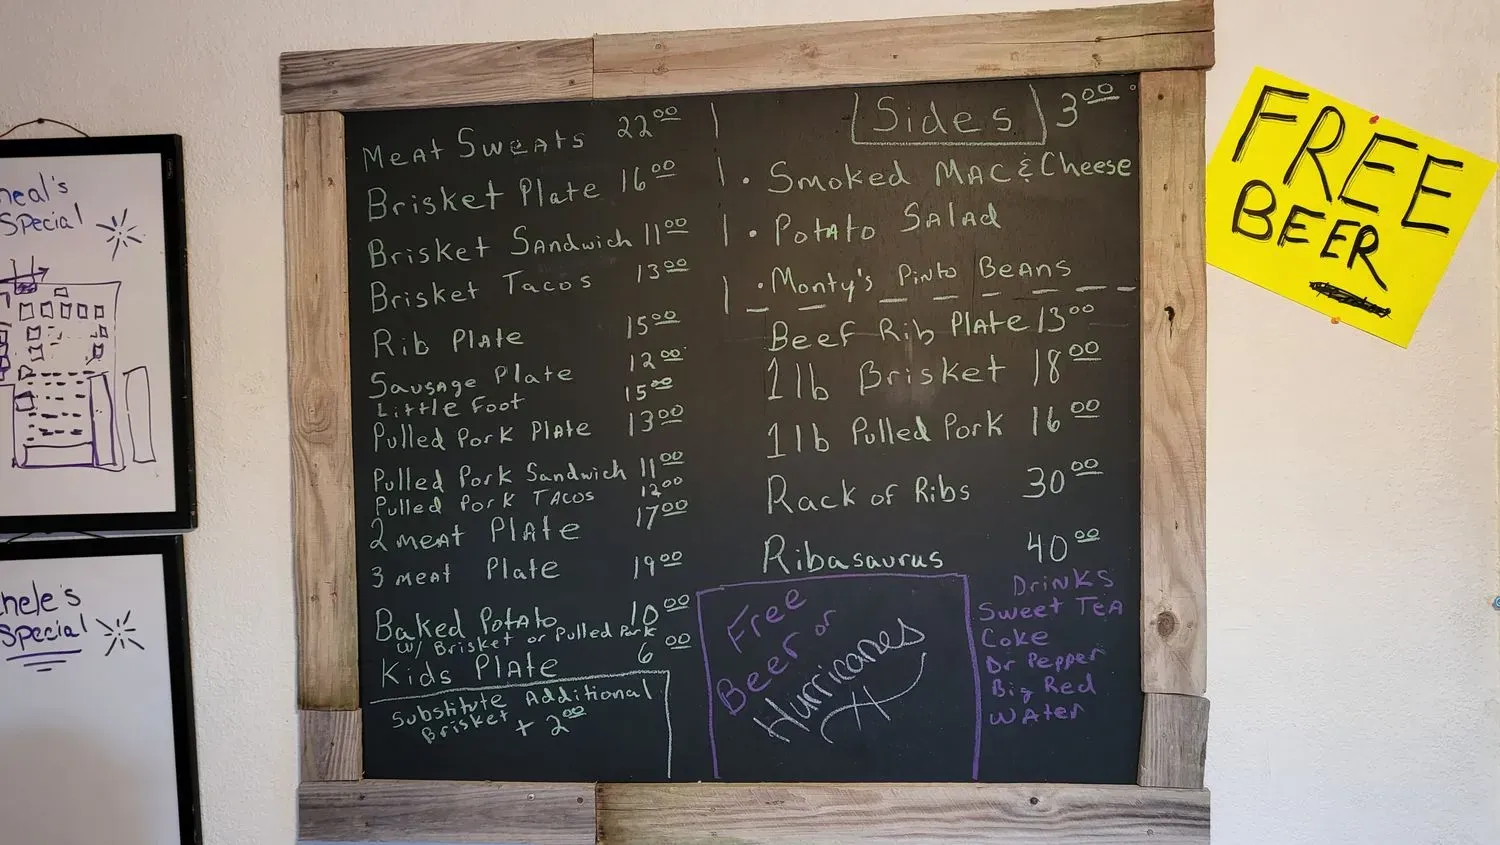 neal's
Special
hele's
Special
Meat Sweats 22⁰⁰
Brisket Plate 16⁰⁰
Brisket Sandwich 11⁰⁰
Brisket Tacos 13⁰⁰
Rib Plate 15⁰⁰
Sausage Plate 12⁰⁰
Little Foot 15⁰⁰
Pulled Pork Plate 13⁰⁰
Pulled Pork Sandwich 11⁰⁰
Pulled Pork Tacos 12⁰⁰
2 meat Plate 17⁰⁰
3 meat Plate 19⁰⁰
Baked Potato 10⁰⁰
w/ Brisket or Pulled Pork
Kids Plate 6⁰⁰
Substitute Additional
Brisket + 2⁰⁰
Sides 3⁰⁰
· Smoked Mac & Cheese
· Potato Salad
· Monty's Pinto Beans
Beef Rib Plate 13⁰⁰
1 lb Brisket 18⁰⁰
1 lb Pulled Pork 16⁰⁰
Rack of Ribs 30⁰⁰
Ribasaurus 40⁰⁰
Free
Beer or
Hurricanes
Drinks
Sweet Tea
Coke
Dr Pepper
Big Red
Water
FREE
BEER